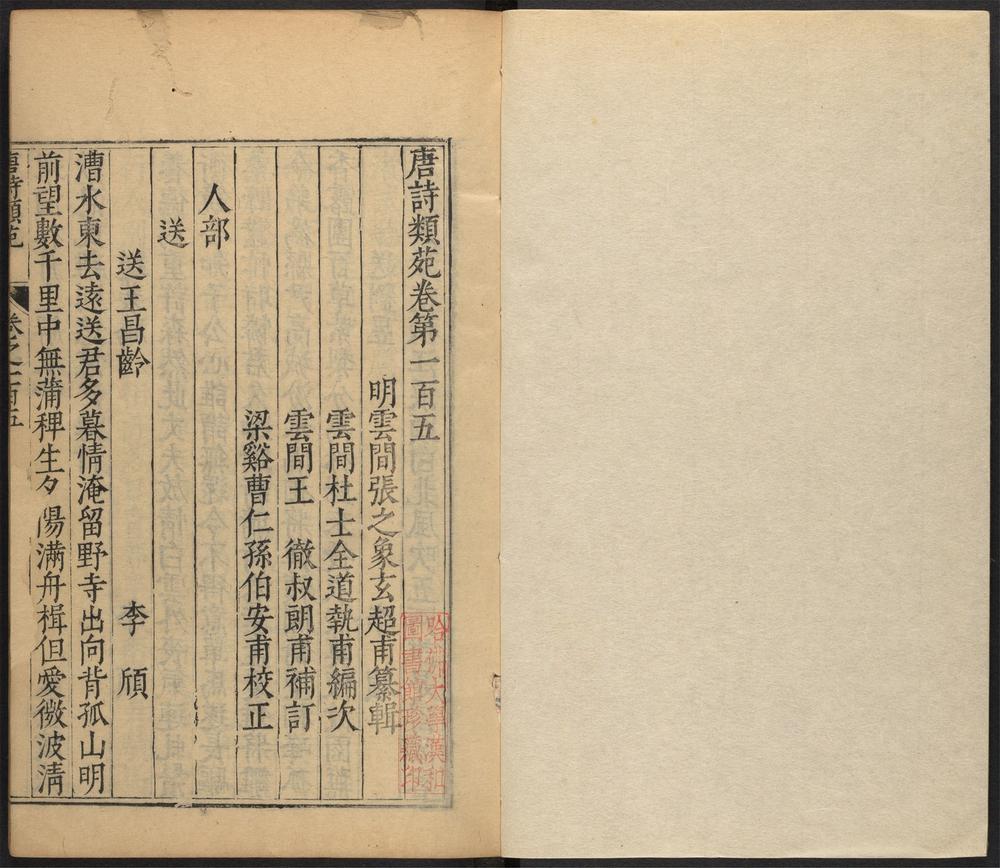 唐詩類苑卷第一百五
明雲間張之象玄超甫纂輯
雲間杜士全道執甫編次
雲間王　徹叔朗甫補訂
梁谿曹仁孫伯安甫校正
人部
送
送王昌齡　李　頎
漕水東去遠送君多暮情淹留野寺出向背孤山明
前望數千里中無蒲稗生夕陽滿舟楫但愛微波淸
唐詩類苑　卷之一百五
哈佛大學漢和
圖書館珍藏印